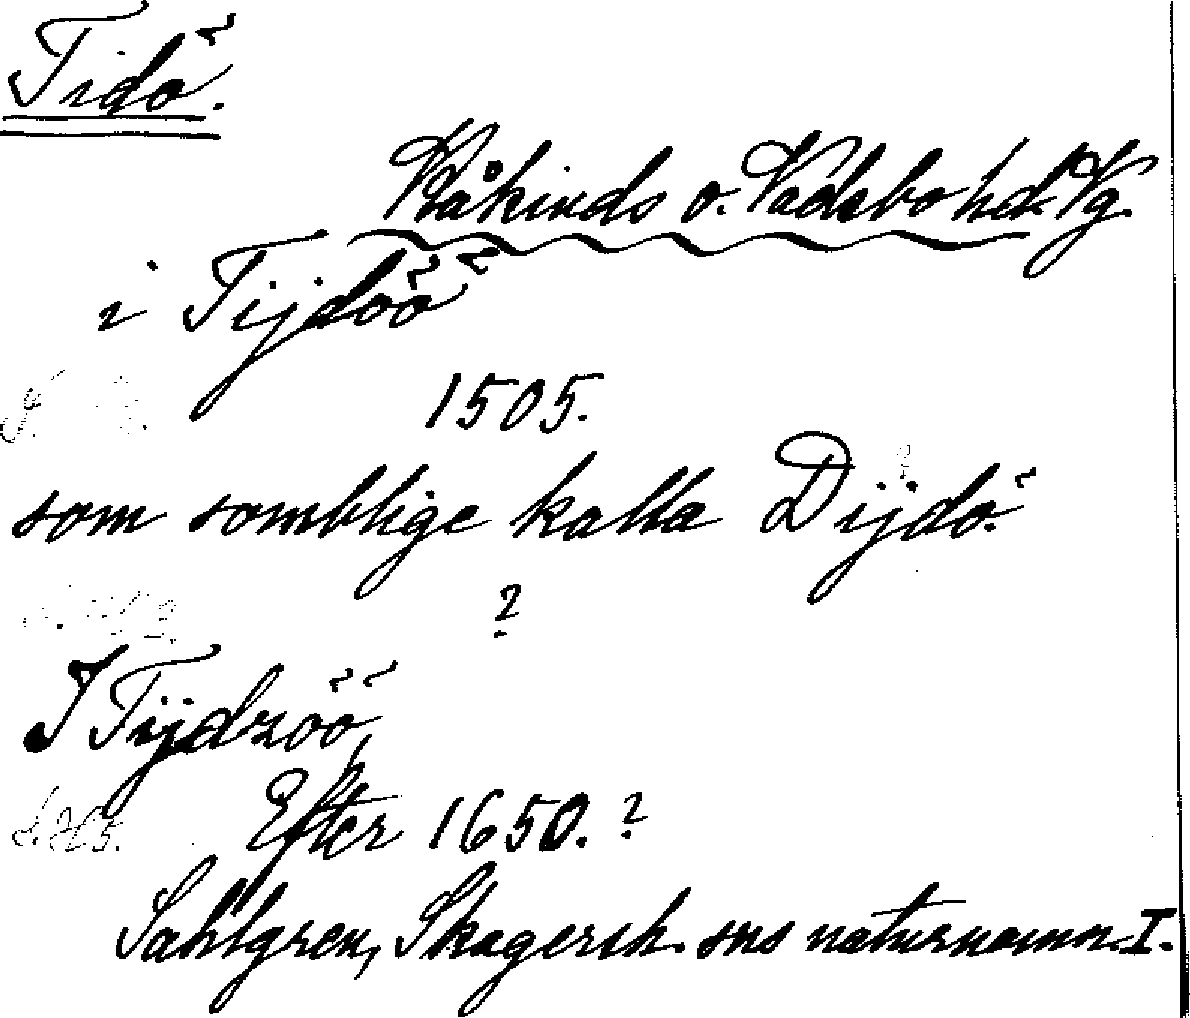 Tidö.
Kåkinds o. Vadsbo hd. Vg.
i Tijdöö
1505.
som somblige kalla Dijdö.
?
I Tijdzöö
Efter 1650. ?
Sahlgren, Skagersh. sns naturnamn. I.